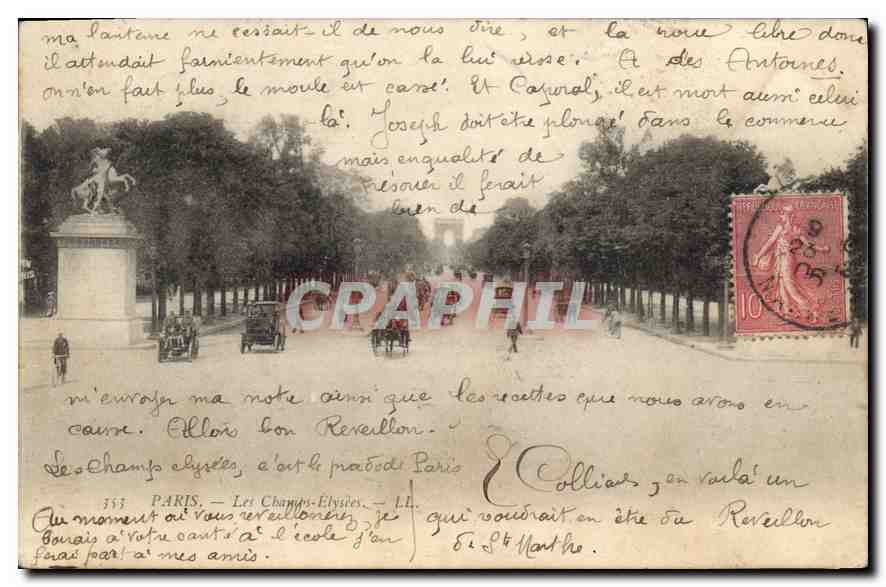 ma lanterne ne cessait-il de nous dire, et la roue libre donc
il attendait farnientement qu'on la lui visse. A des Antoines.
on n'en fait plus, le moule est cassé. Et Caporal, il est mort aussi celui
là. Joseph doit être plongé dans le commerce
mais en qualité de
trésorier il ferait
bien de
REPUBLIQUE FRANÇAISE
10
9
23
05
CPARAMA
CRAPHIL
m'envoyer ma note ainsi que les recettes que nous avons en
caisse. Allons bon Reveillon.
Les champs elysées, c'est le prado de Paris
E Colliard, en voilà un
353 PARIS. — Les Champs-Elysées. — LL.
Au moment où vous reveillonnerez, je
qui voudrait en être du Reveillon
boirais à votre santé à l'école j'en
de Ste Marthe.
ferai part à mes amis.